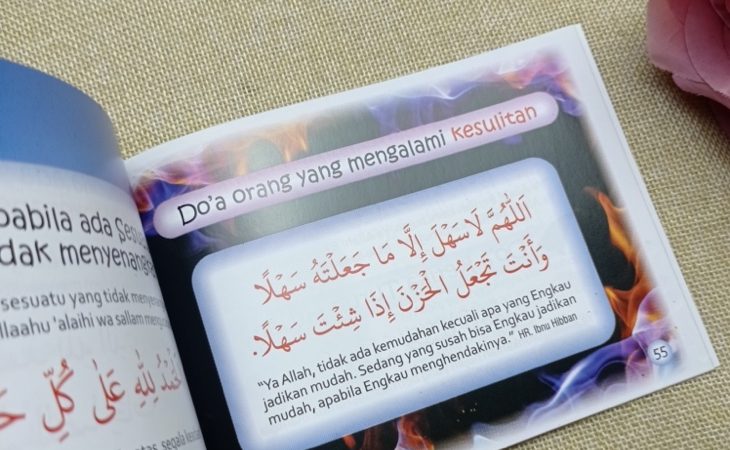 ada
dak
sesuatu yang tidak
'alaihi wa sallam
لِلّٰهِ عَلَى كُلِّ
segala
Do'a orang yang mengalami kesulitan
اَللّٰهُمَّ لَاسَهْلَ إِلَّا مَا جَعَلْتَهُ سَهْلًا
وَأَنْتَ تَجْعَلُ الْحَزْنَ إِذَا شِئْتَ سَهْلًا.
"Ya Allah, tidak ada kemudahan kecuali apa yang Engkau
jadikan mudah. Sedang yang susah bisa Engkau jadikan
mudah, apabila Engkau menghendakinya." HR. Ibnu Hibban
55